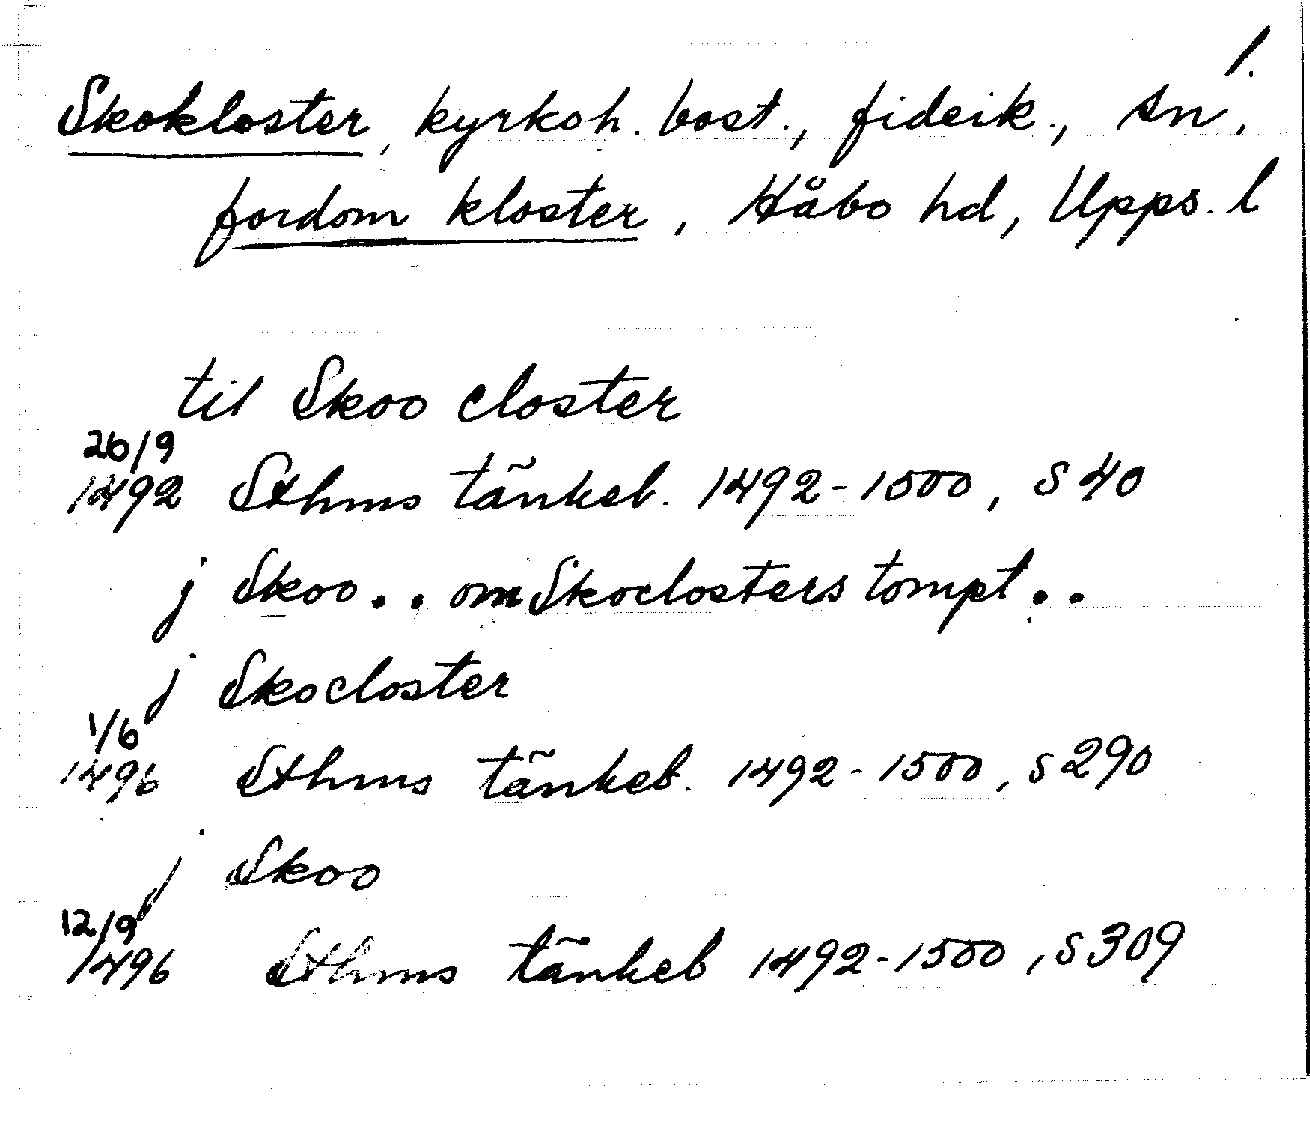 1.
Skokloster, kyrkoh. bost., fideik., sn,
fordom kloster, Håbo hd, Upps. l
til Skoo closter
26/9
1492 Sthms tänkeb. 1492-1500, s 40
j Skoo.. om Skoclosters tompt..
j Skocloster
1/6
1496 Sthms tänkeb. 1492-1500, s 290
j Skoo
12/9
1496 Sthms tänkeb 1492-1500, s 309